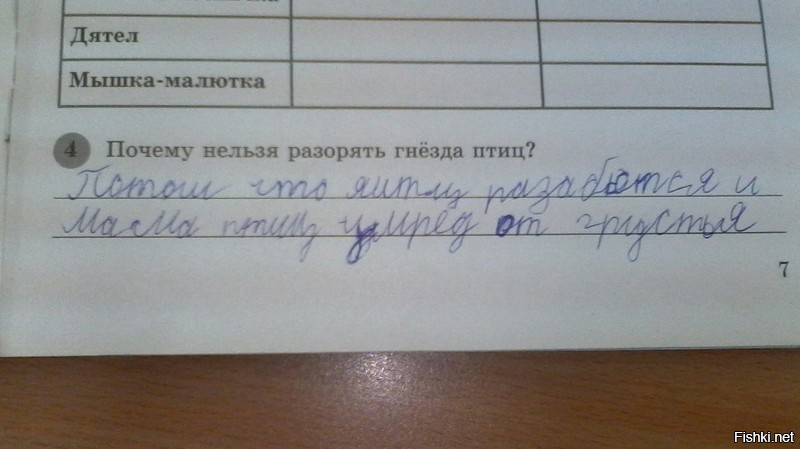 Дятел
Мышка-малютка
4 Почему нельзя разорять гнёзда птиц?
Потош что яитц разабются и
мама птиц умред от грустья
7
Fishki.net